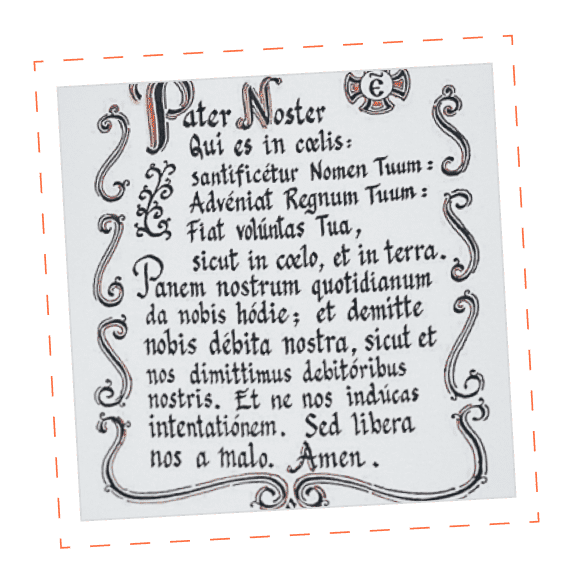 Pater Noster
Qui es in cœlis:
santificétur Nomen Tuum:
Advéniat Regnum Tuum:
Fiat volúntas Tua,
sicut in cœlo, et in terra.
Panem nostrum quotidianum
da nobis hódie; et demitte
nobis débita nostra, sicut et
nos dimittimus debitóribus
nostris. Et ne nos indúcas
intentatiónem. Sed libera
nos a malo. Amen.